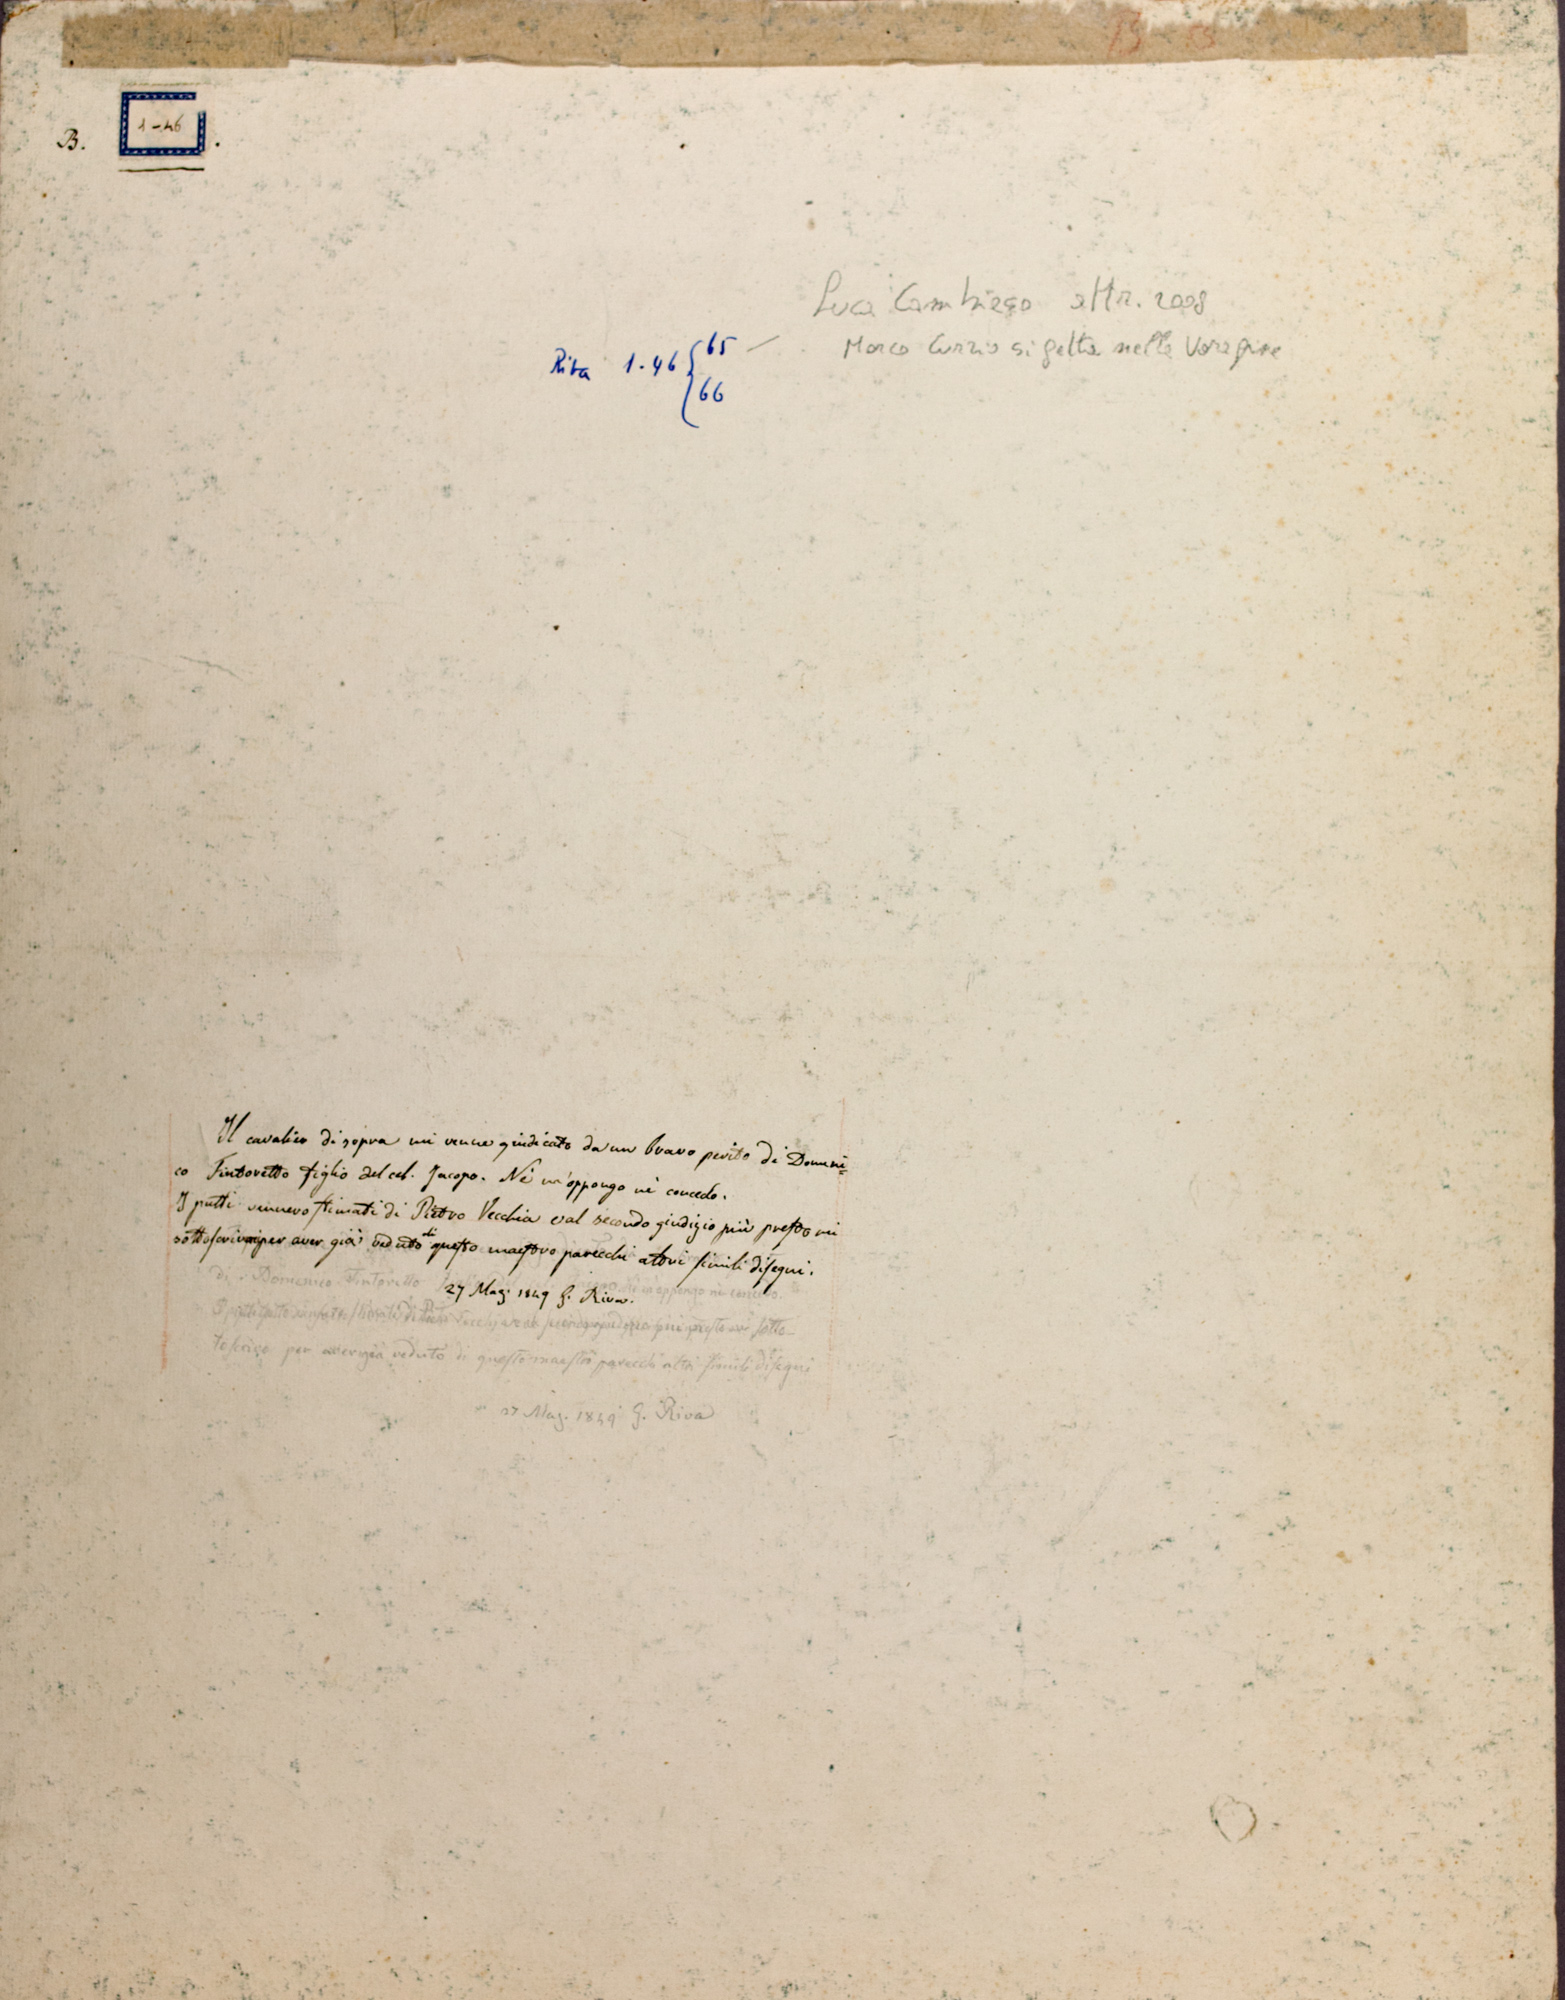 13 53
B. 1-46.
Luca Cambiaso attr. 2008
Riva 1.46 { 65 —
66
Marco Curzio si getta nella Voragine
Il cavaliere di sopra mi venne giudicato da un bravo perito di Domeni=
co Tintoretto figlio del cel. Jacopo. Nè m'oppongo nè concedo.
I putti vennero stimati di Pietro Vecchia e al secondo giudizio più presto mi
sottoscrivo per aver già veduto di questo maestro parecchi altri simili disegni.
27 Mag. 1849 G. Riva.
di Domenico Tintoretto m'oppongo nè concedo.
Vecchia e al secondo giudizio più presto mi sotto-
toscrivo per aver già veduto di questo maestro parecchi altri simili disegni
27 Mag. 1849 G. Riva